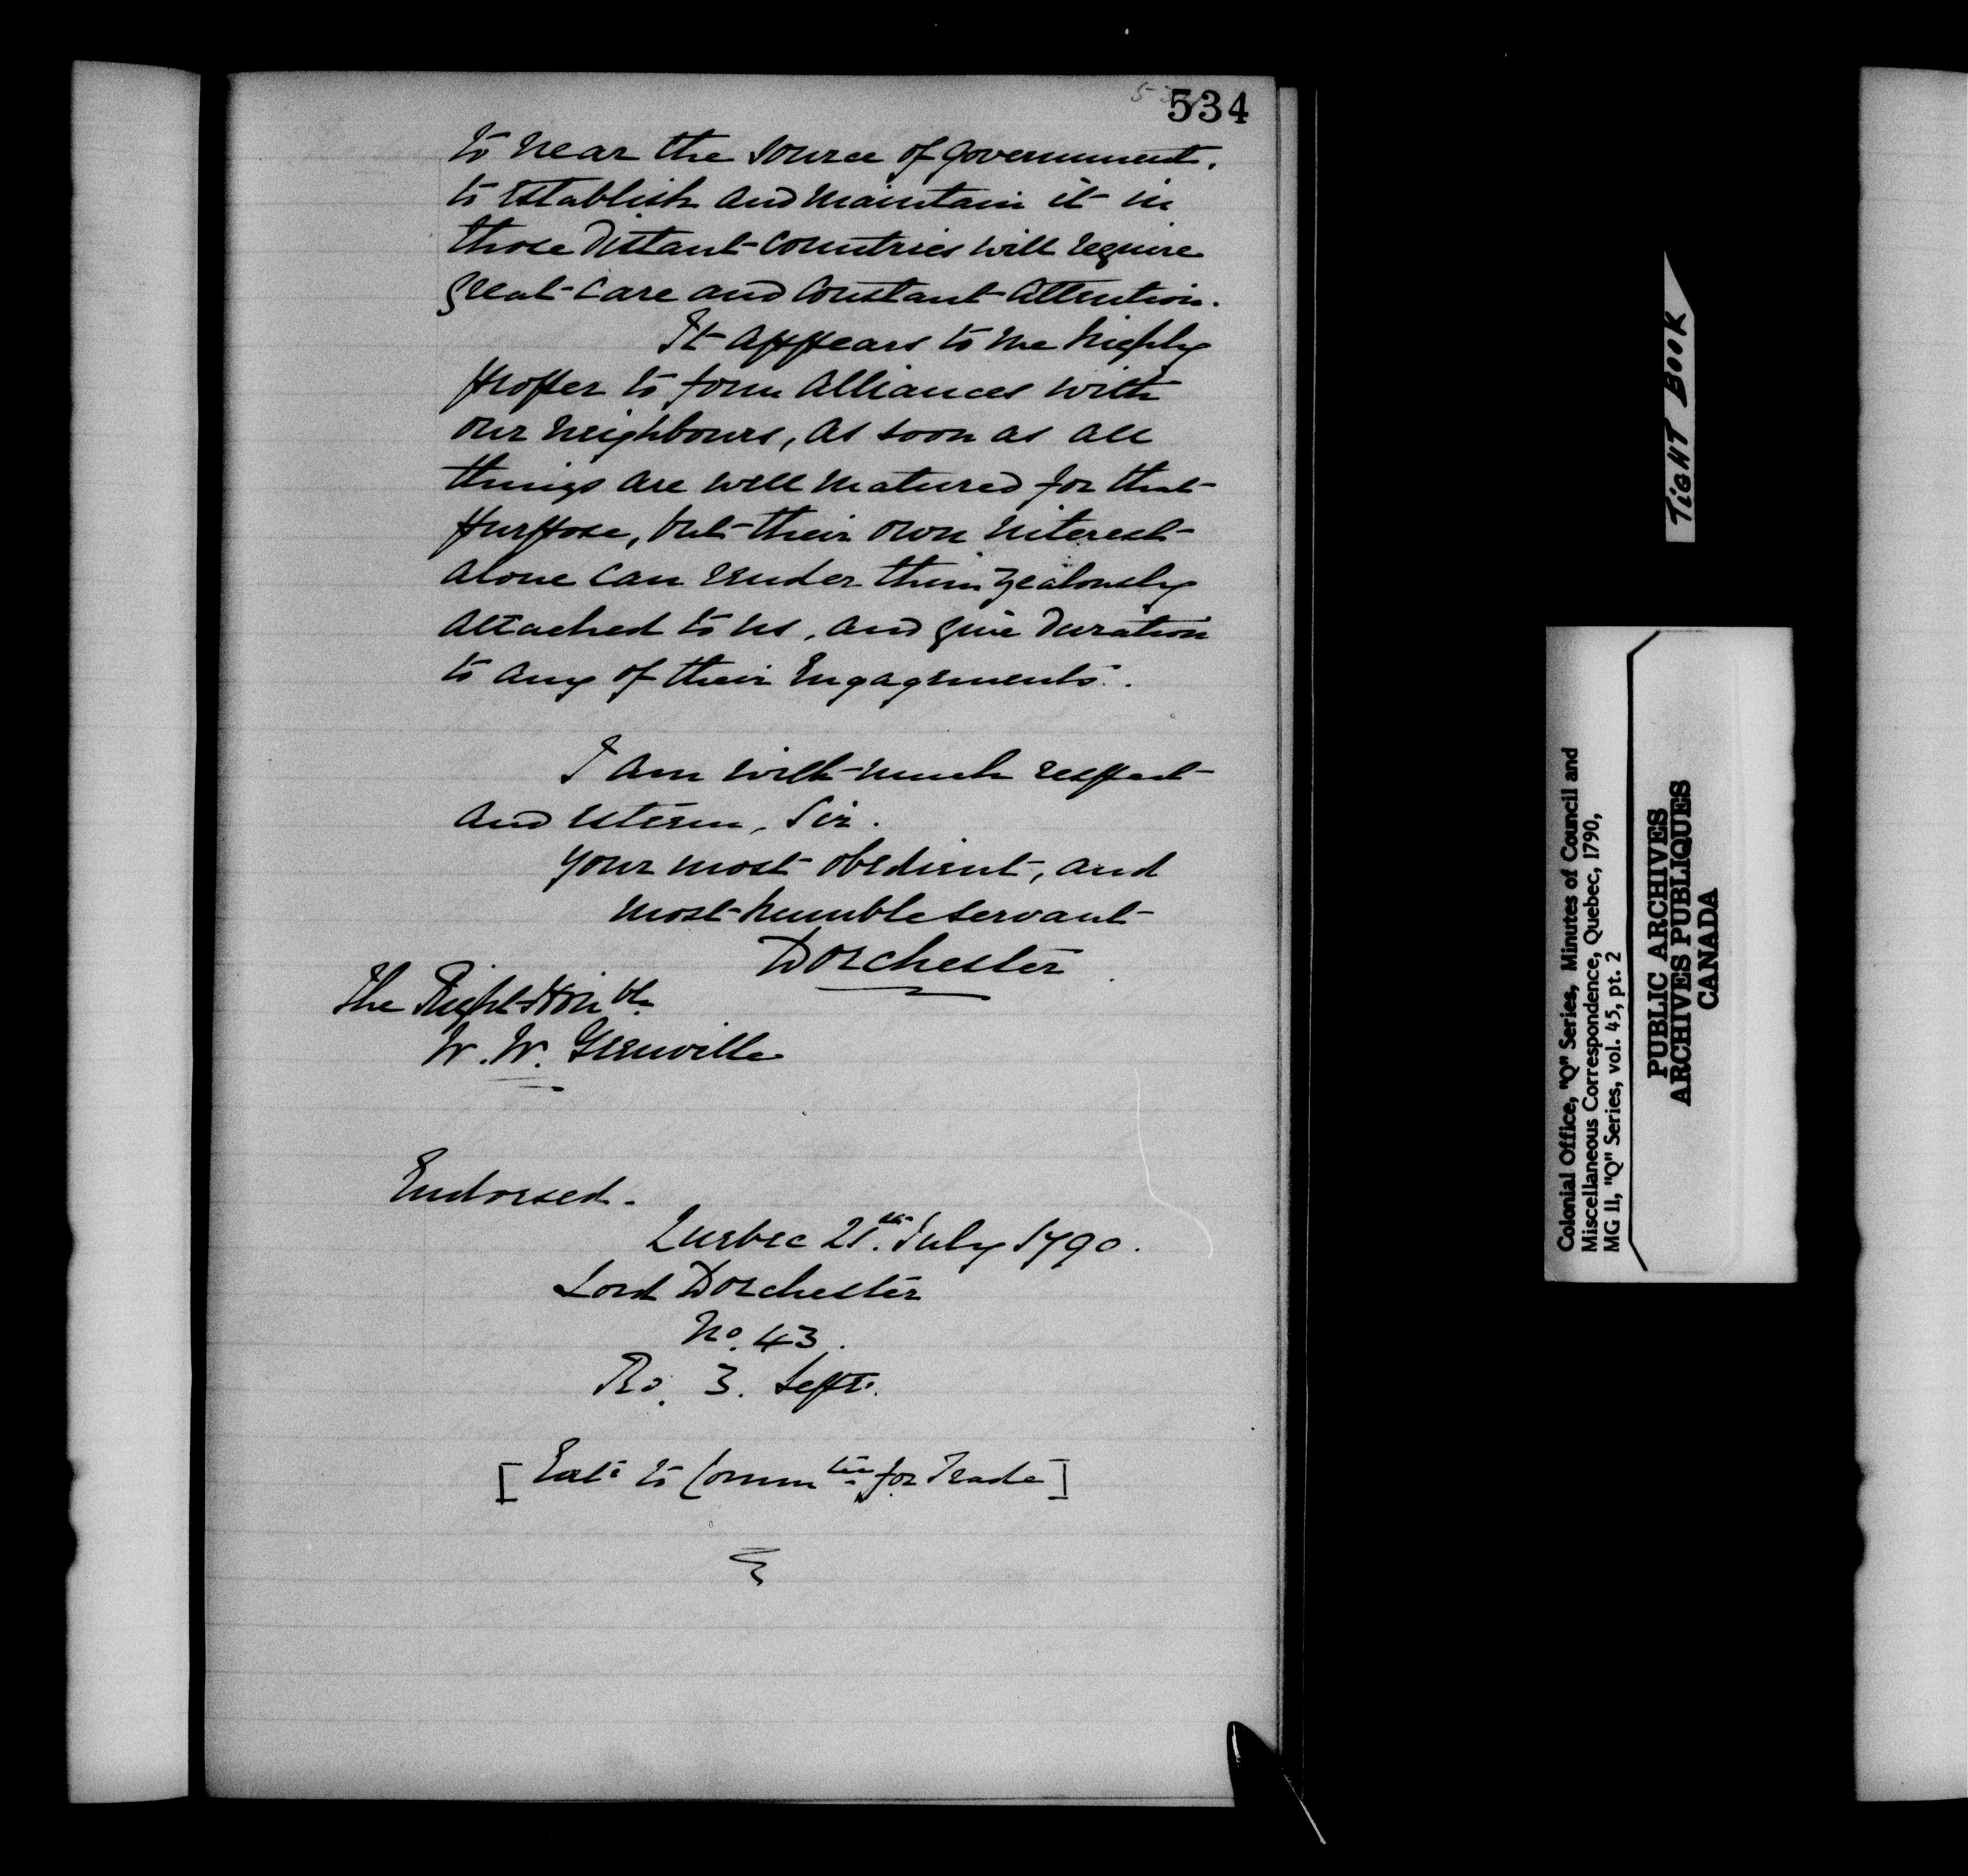 534
to near the source of Government.
to establish and maintain it in
those distant countries will require
great care and constant attention.
It appears to me highly
proper to form alliances with
our neighbours, as soon as all
things are well matured for that
purpose, but their own interest
alone can render them zealously
attached to us, and give duration
to any of their Engagements.
I am with much respect
and esteem, Sir.
Your most obedient, and
most humble servant
Dorchester
The Right Hon ble
W. W. Grenville
Endorsed.
Quebec 21st July 1790.
Lord Dorchester
No. 43.
Rd. 3. Septr.
[Ext: to Comm tee for Trade]
TIGHT BOOK
Colonial Office, "Q" Series, Minutes of Council and
Miscellaneous Correspondence, Quebec, 1790,
MG 11, "Q" Series, vol. 45, pt. 2
PUBLIC ARCHIVES
ARCHIVES PUBLIQUES
CANADA